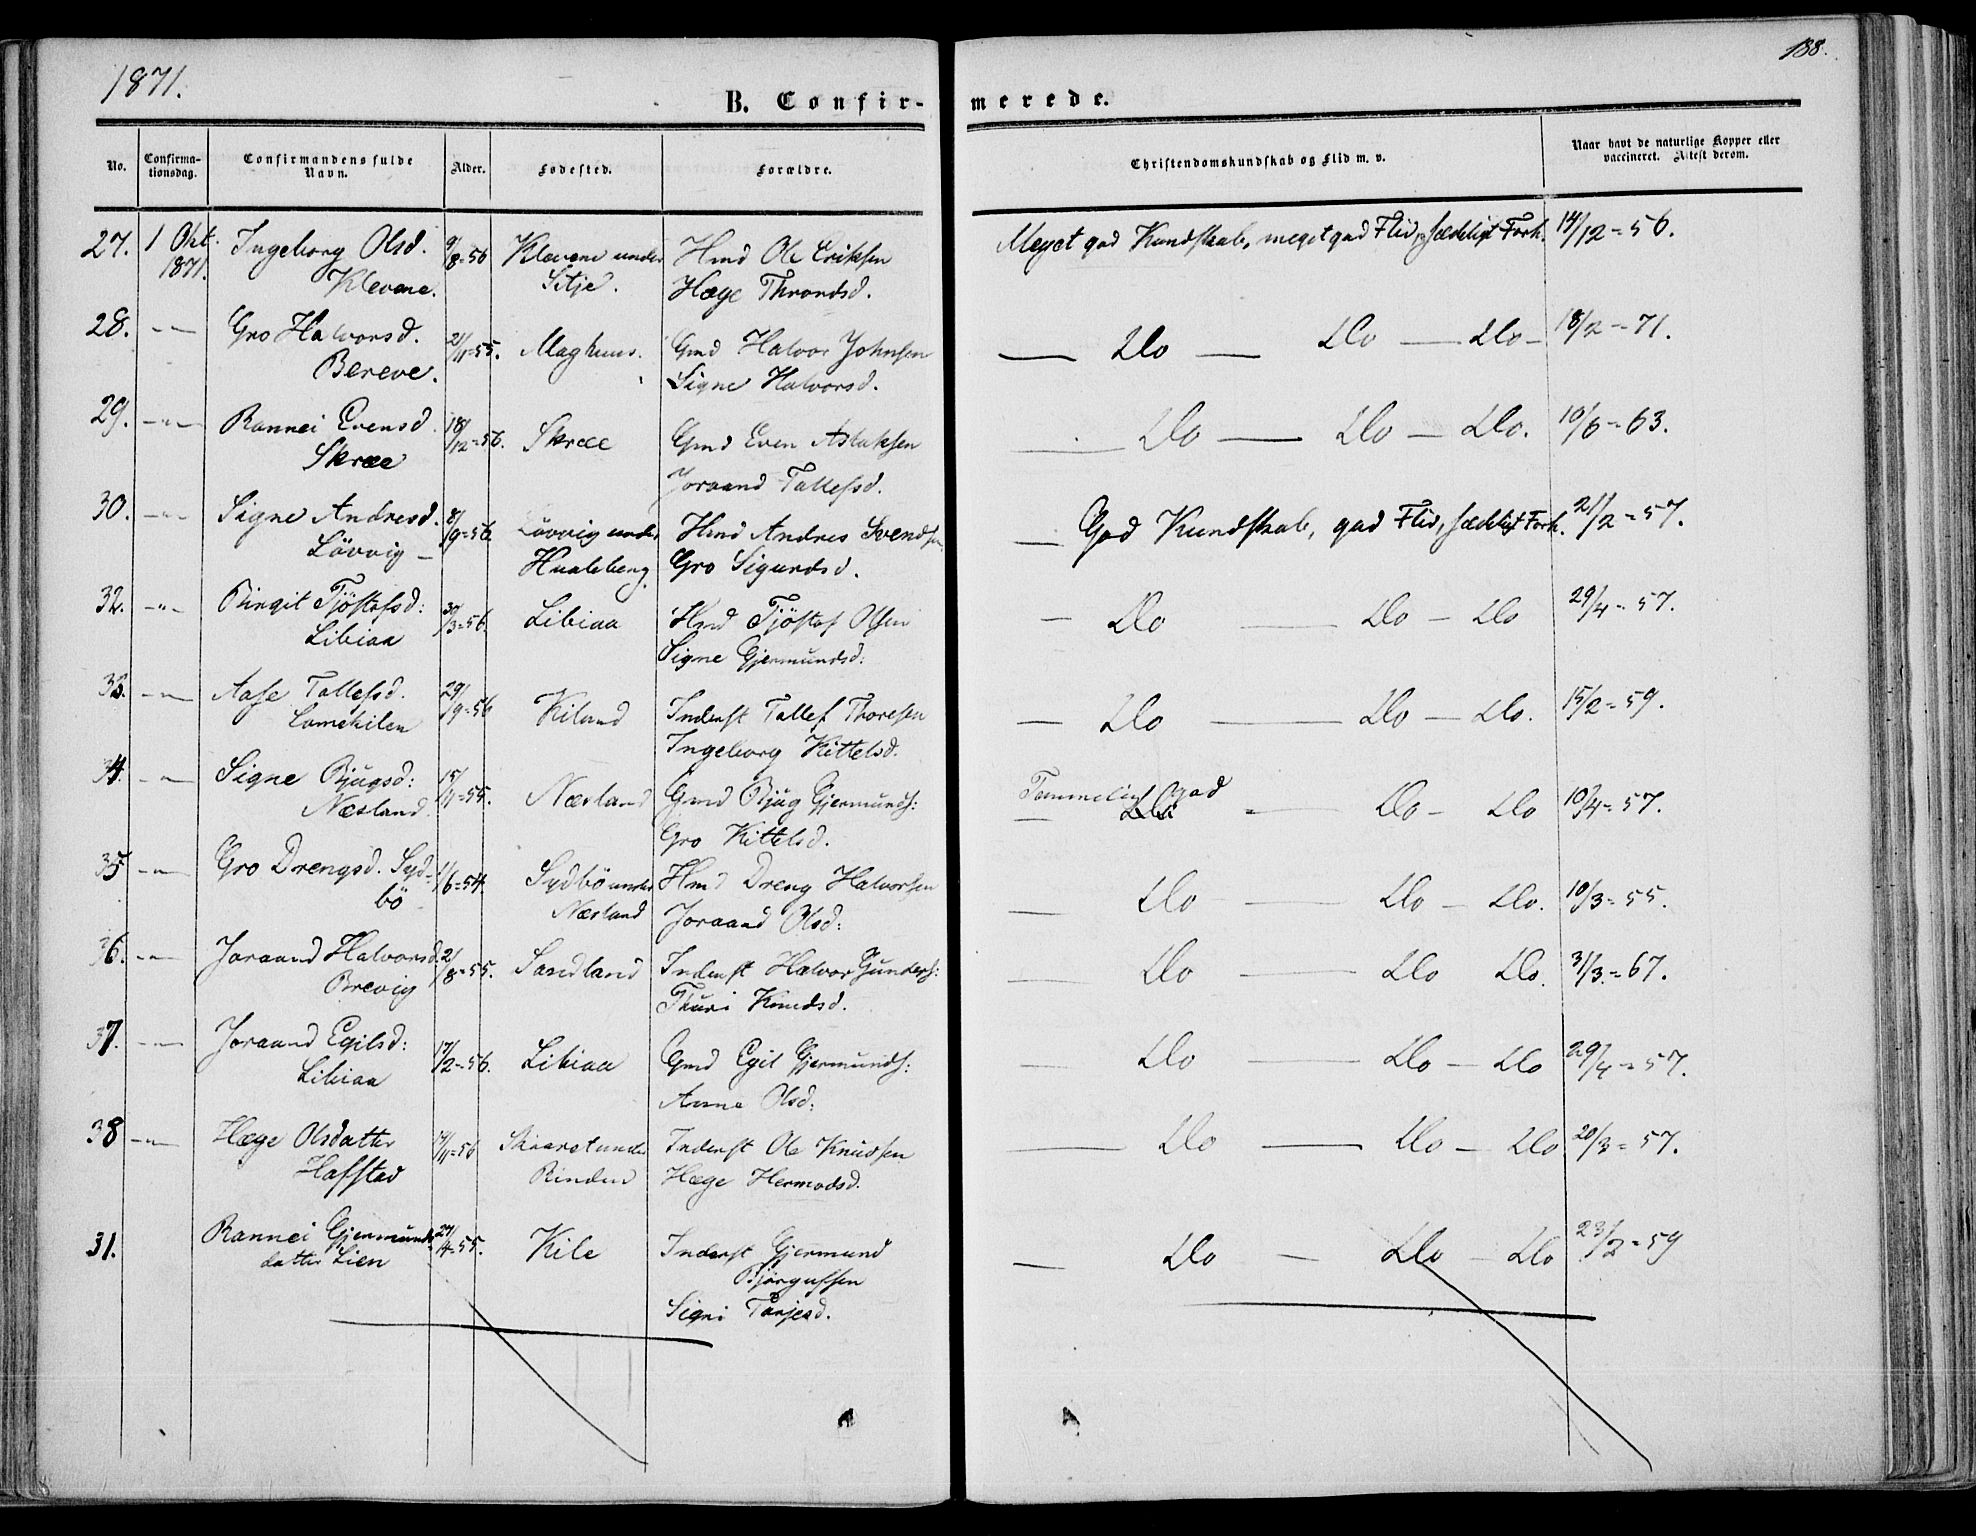 1871.
188.
B. Confir-
merede.
No.
Confirma-
tionsdag.
Confirmandens fulde
Navn.
Alder.
Fødested.
Forældre.
Christendomskundskab og Flid m. v.
Naar havt de naturlige Kopper eller
vaccineret. Attest derom.
27. 1 Okt. Ingeborg Olsd. 9/8=56 Klevene under Hmd Ole Eriksen Meget god Kundskab, meget god Flid, sædeligt Forh. 14/12=56.
1871. Klevene. Sitje. Hæge Throndsd.
28. -"- Gro Halvorsd. 21/11=55. Maghuus. Gmd Halvor Johnsen — Do — Do — Do — 18/2=71.
Bereve. Signe Halvorsd.
29. -"- Rannei Evensd. 18/12=56. Skree Gmd Even Aslaksen — Do — Do — Do. 10/6=63.
Skree Joraand Tallefsd.
30. -"- Signe Andresd. 8/9=56 Lövvig under Hmd Andres Svendsen — God Kundskab, god Flid, sædeligt Forh. 21/2=57.
Lövvig — Gro Sigurdsd.
32. -"- Birgit Tjöstofsd: 30/3=56. Libiaa Hmd Tjöstof Olsen — Do — Do — Do 29/4=57.
Libiaa Signe Gjermundsd:
33. -"- Aase Tallefsd. 29/9=56 Kiland Inderst Tallef Thoresen — Do — Do — Do. 15/2=59.
Ingeborg Kittelsd.
34. -"- Signe Bjugsd: 15/11=55. Næsland Gmd Bjug Gjermunds: Temmelig god — Do — Do 10/4=57.
Næsland. Gro Kittelsd. Do
35 -"- Gro Drengsd. Syd- 1/6=54. Sydbö under Hmd Dreng Halvorsen — Do — Do — Do. 10/3=55.
bö Næsland Joraand Olsd:
36. -"- Joraand Halvorsd. 2/8=55. Sandland Inderst Halvor Gunders: — Do — Do Do. 31/3=67.
Brevig Thuri Knudsd.
37. -"- Joraand Egilsd: 17/2=56. Libiaa Gmd Egil Gjermunds: — Do — Do — Do 29/4=57.
Libiaa Anne Olsd:
38 -"- Hæge Olsdatter 14/11=56 under Inderst Ole Knudsen — Do — Do — Do 20/3=57.
Hafstad Rinden Hæge Hermodsd.
31. Rannei Gjermunds 29/4=55. Kile Inderst Gjermund — Do — Do — Do 23/2=59
datter Lien Bjørgufsen
Signi Tarjesd.